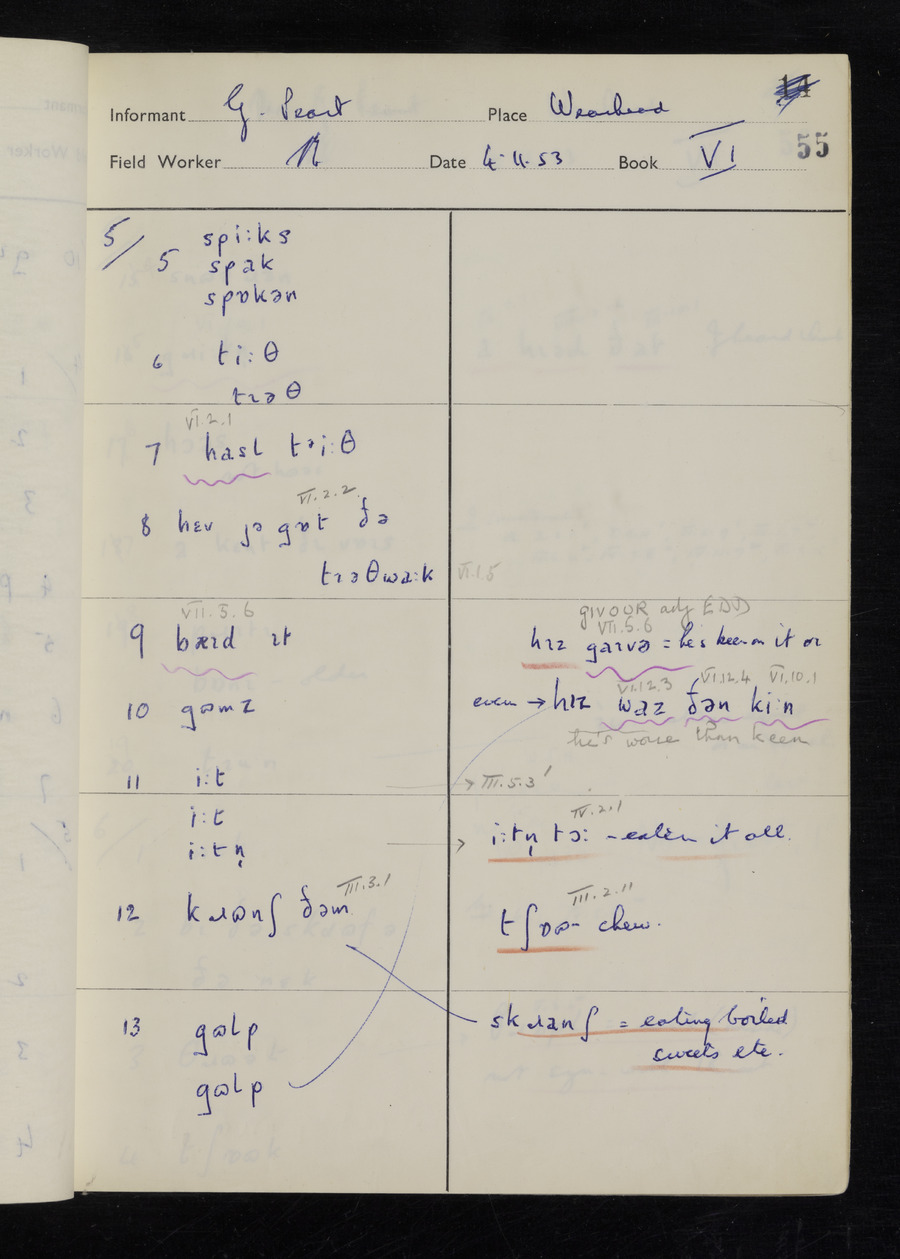 Informant G. Peart Place Wearhead
55
Field Worker Date 4.11.53 Book VI
5/ 5 spi:ks
spak
spɒkən
6 ti:θ
tɪəθ
VI.2.1
7 hasl tᵊi:θ
VI.2.2
8 hɛv jə gɒt ðə
tɪəθwa:k VI.1.5
VII.3.6
9 bæɪd ɪt
GIVOUR adj EDD
VII.5.6
hɪz gaɪvə = he's keen on it or
10 gɷmz
VI.12.3 VI.12.4 VI.10.1
even → hɪz waz ðən ki:n
he's worse than keen
11 i:t → III.5.3'
i:t
i:tn̩ →
IV.2.1
i:tn̩ tɔ: - eaten it all.
III.3.1
12 kɹɷnʃ ðəm
III.2.11
tʃɒɷ- chew.
13 gɷlp
gɷlp
skɹanʃ = eating boiled
sweets etc.